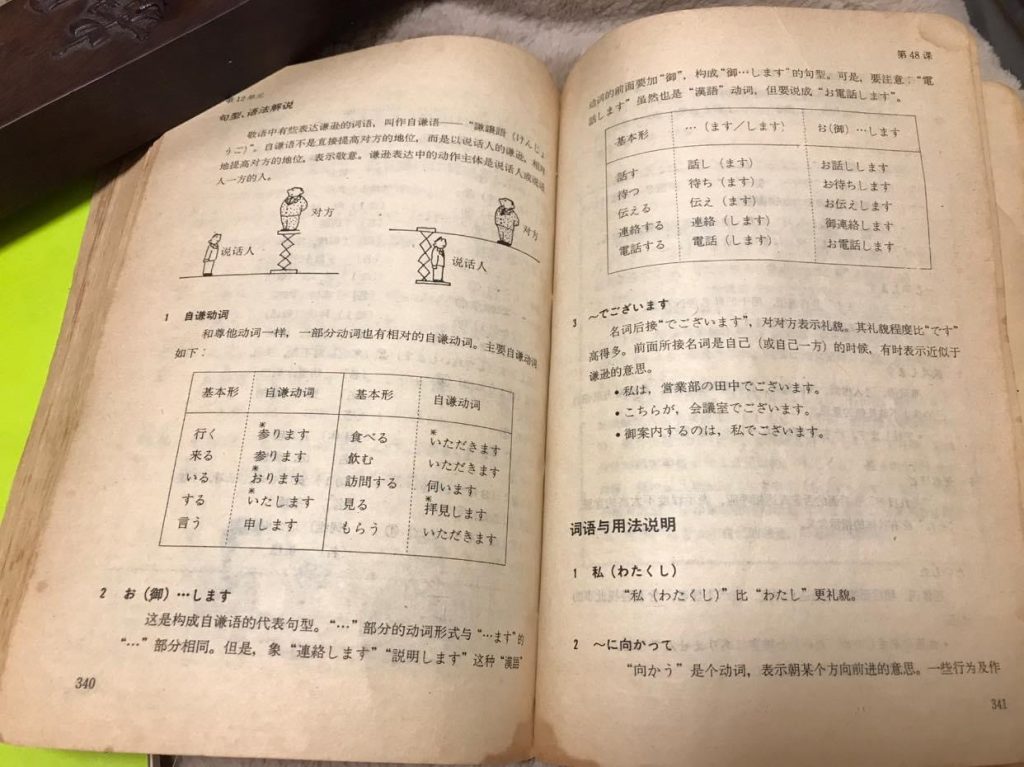 第12单元
句型、语法解说
敬语中有些表达谦逊的词语，叫作自谦语——“謙譲語（けんじょ
うご）”。自谦语不是直接提高对方的地位，而是以说话人的谦逊，相对
地提高对方的地位，表示敬意。谦逊表达中的动作主体是说话人或说话
人一方的人。
对方
说话人
对方
说话人
1 自谦动词
和尊他动词一样，一部分动词也有相对的自谦动词。主要自谦动词
如下：
基本形 自谦动词 基本形 自谦动词
行く *参ります 食べる *いただきます
来る 参ります 飲む いただきます
いる *おります 訪問する 伺います
する *いたします 見る *拝見します
言う 申します もらう① いただきます
2 お（御）…します
这是构成自谦语的代表句型。“…”部分的动词形式与“…ます”的
“…”部分相同。但是，象“連絡します”“説明します”这种“漢語”
340
第48课
动词的前面要加“御”，构成“御…します”的句型。可是，要注意：“電
話します”虽然也是“漢語”动词，但要说成“お電話します”。
基本形 …（ます／します） お（御）…します
話す 話し（ます） お話しします
待つ 待ち（ます） お待ちします
伝える 伝え（ます） お伝えします
連絡する 連絡（します） 御連絡します
電話する 電話（します） お電話します
3 ～でございます
名词后接“でございます”，对对方表示礼貌。其礼貌程度比“です”
高得多。前面所接名词是自己（或自己一方）的时候，有时表示近似于
谦逊的意思。
•私は，営業部の田中でございます。
•こちらが，会議室でございます。
•御案内するのは，私でございます。
词语与用法说明
1 私（わたくし）
“私（わたくし）”比“わたし”更礼貌。
2 ～に向かって
“向かう”是个动词，表示朝某个方向前进的意思。一些行为及作
341